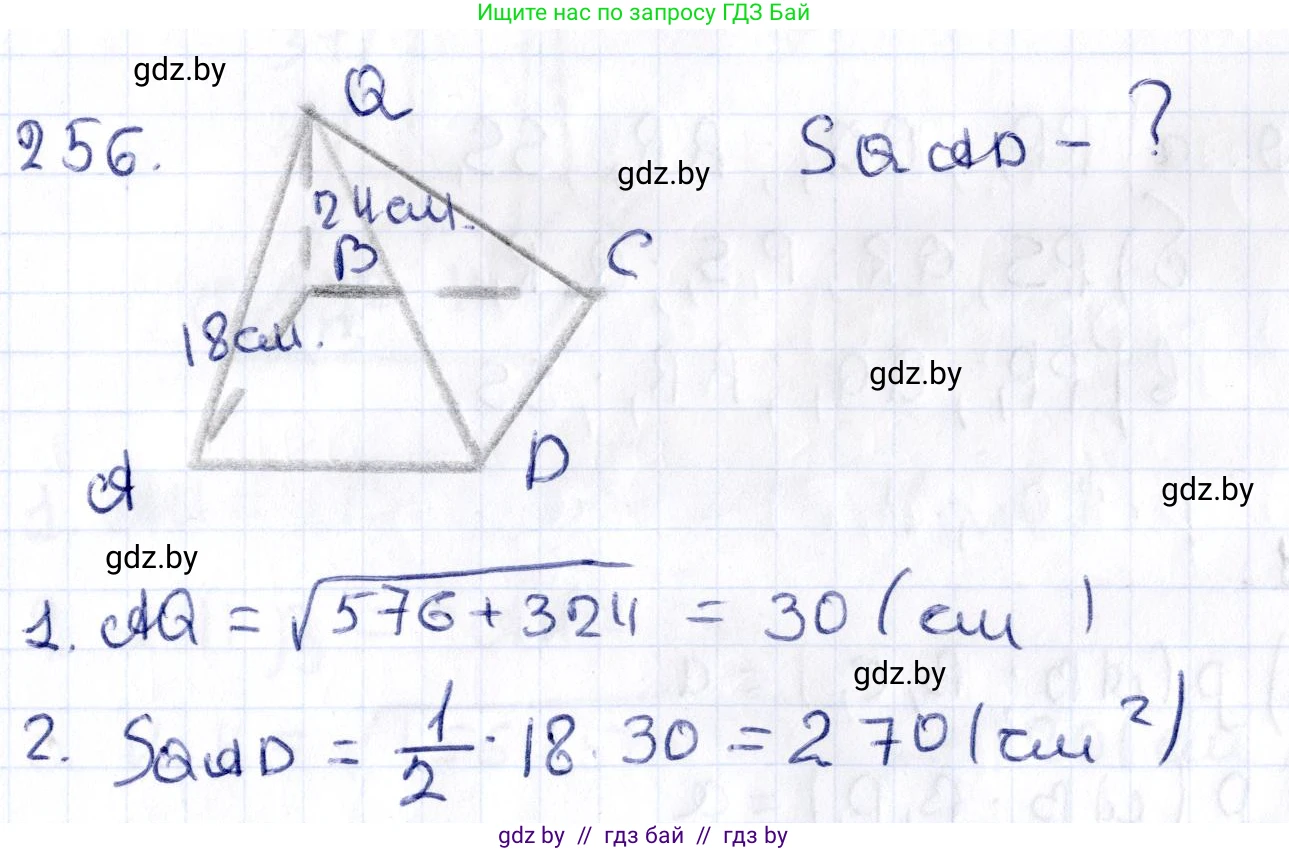 Ищите нас по запросу ГДЗ Бай
gdz.by
Q
256.
SQAD - ?
gdz.by
24см.
B
C
18см.
gdz.by
D
A
gdz.by
gdz.by
1. AQ = √576 + 324 = 30 (см)
gdz.by
2. SQAD = 1/2 · 18 · 30 = 270 (см²)
gdz.by // гдз бай // гдз by